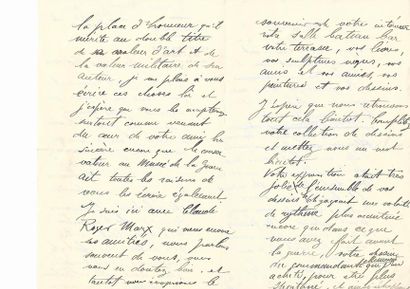 la place d'honneur qu'il
mérite au double titre
de sa valeur d'art et de
la valeur militaire de son
auteur, je me plais à vous
écrire ces choses là et
j'espère que vous les accepterez
surtout comme venant
du cœur de votre ami bien
sincère encore que le conser-
vateur au Musée de la Guerre
ait toutes les raisons de
vous les écrire également
Je suis ici avec Claude
Roger Marx qui vous envoie
ses amitiés, nous parlons
souvent de vous, vous
vous en doutez bien. et
surtout nous
souvenirs de votre intérieur
votre salle bateau bar
votre terrasse, vos livres,
vos sculptures nègres, vos
amis et vos amies, vos
peintures et vos dessins.
J'espère que nous retrouverons
tout cela bientôt.
votre collection de dessins
et mettez nous un mot
bientôt.
Votre exposition était très
jolie, l'ensemble de vos
dessins dégageait une volonté
de rythme plus accentuée
encore que dans ce que
vous avez fait avant
la guerre, votre dessin
du commandant que j'ai
acheté, pour être plus
spontané, et